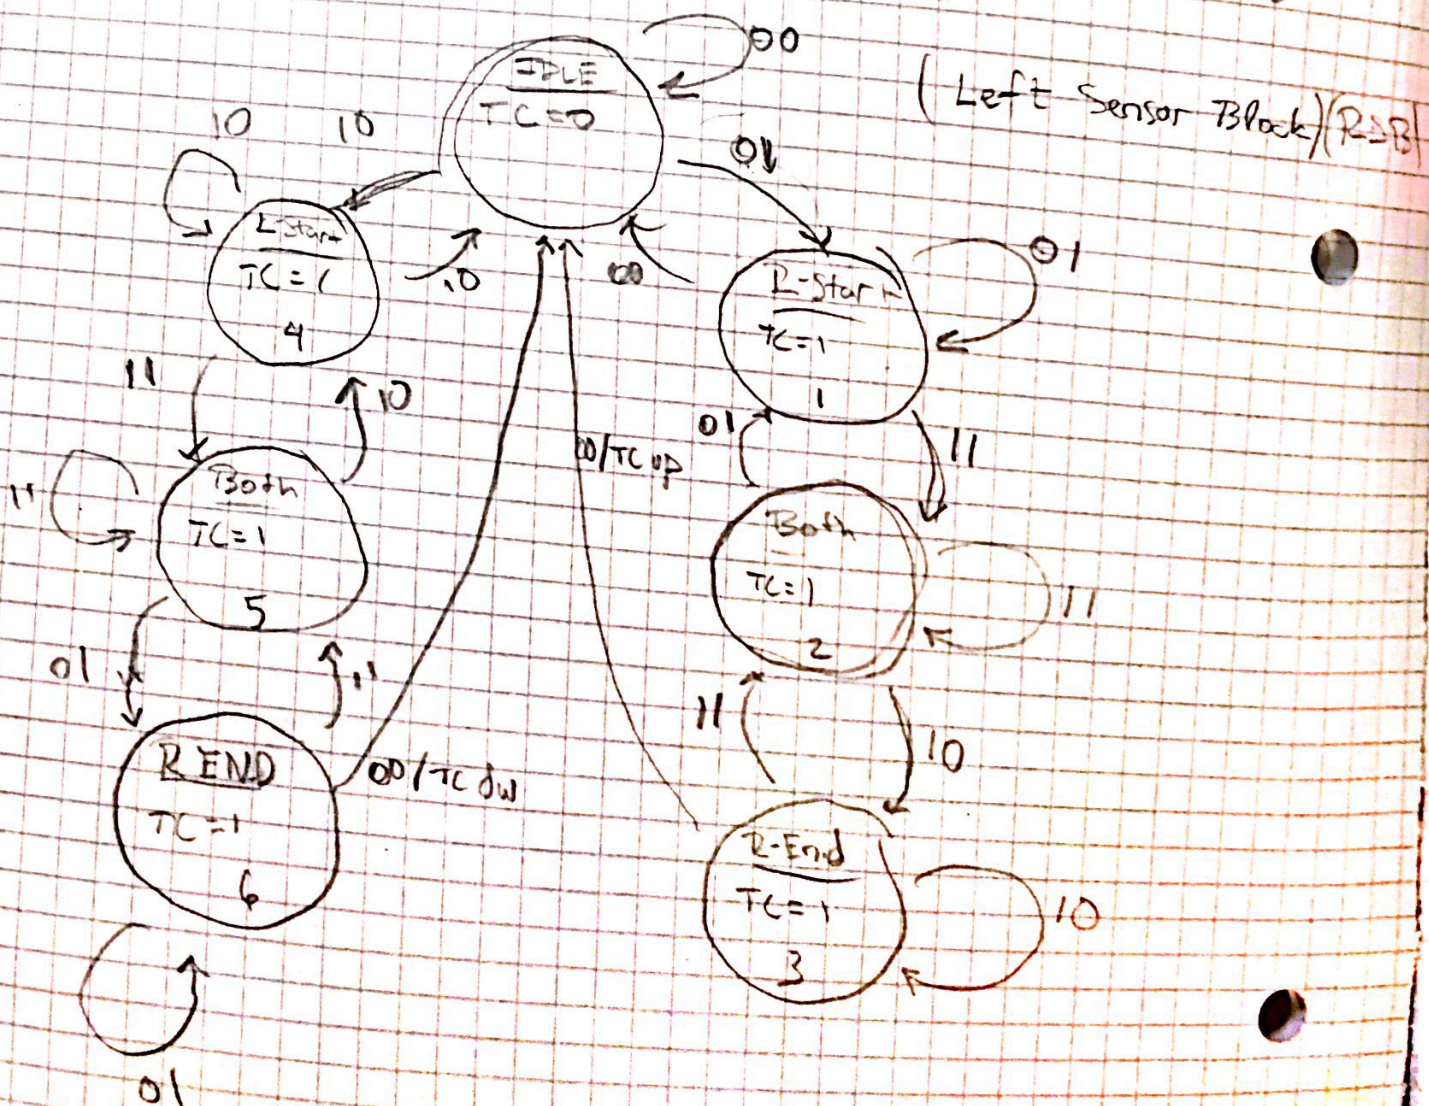 00
IDLE
TC=0
(Left Sensor Block)(RSB)
10
10
01
L-Start
TC=1
4
00
R-Start
TC=1
1
01
11
10
01
11
00/TC up
Both
TC=1
5
11
Both
TC=1
2
11
01
11
11
10
R END
TC=1
6
00/TC dw
R-End
TC=1
3
10
01